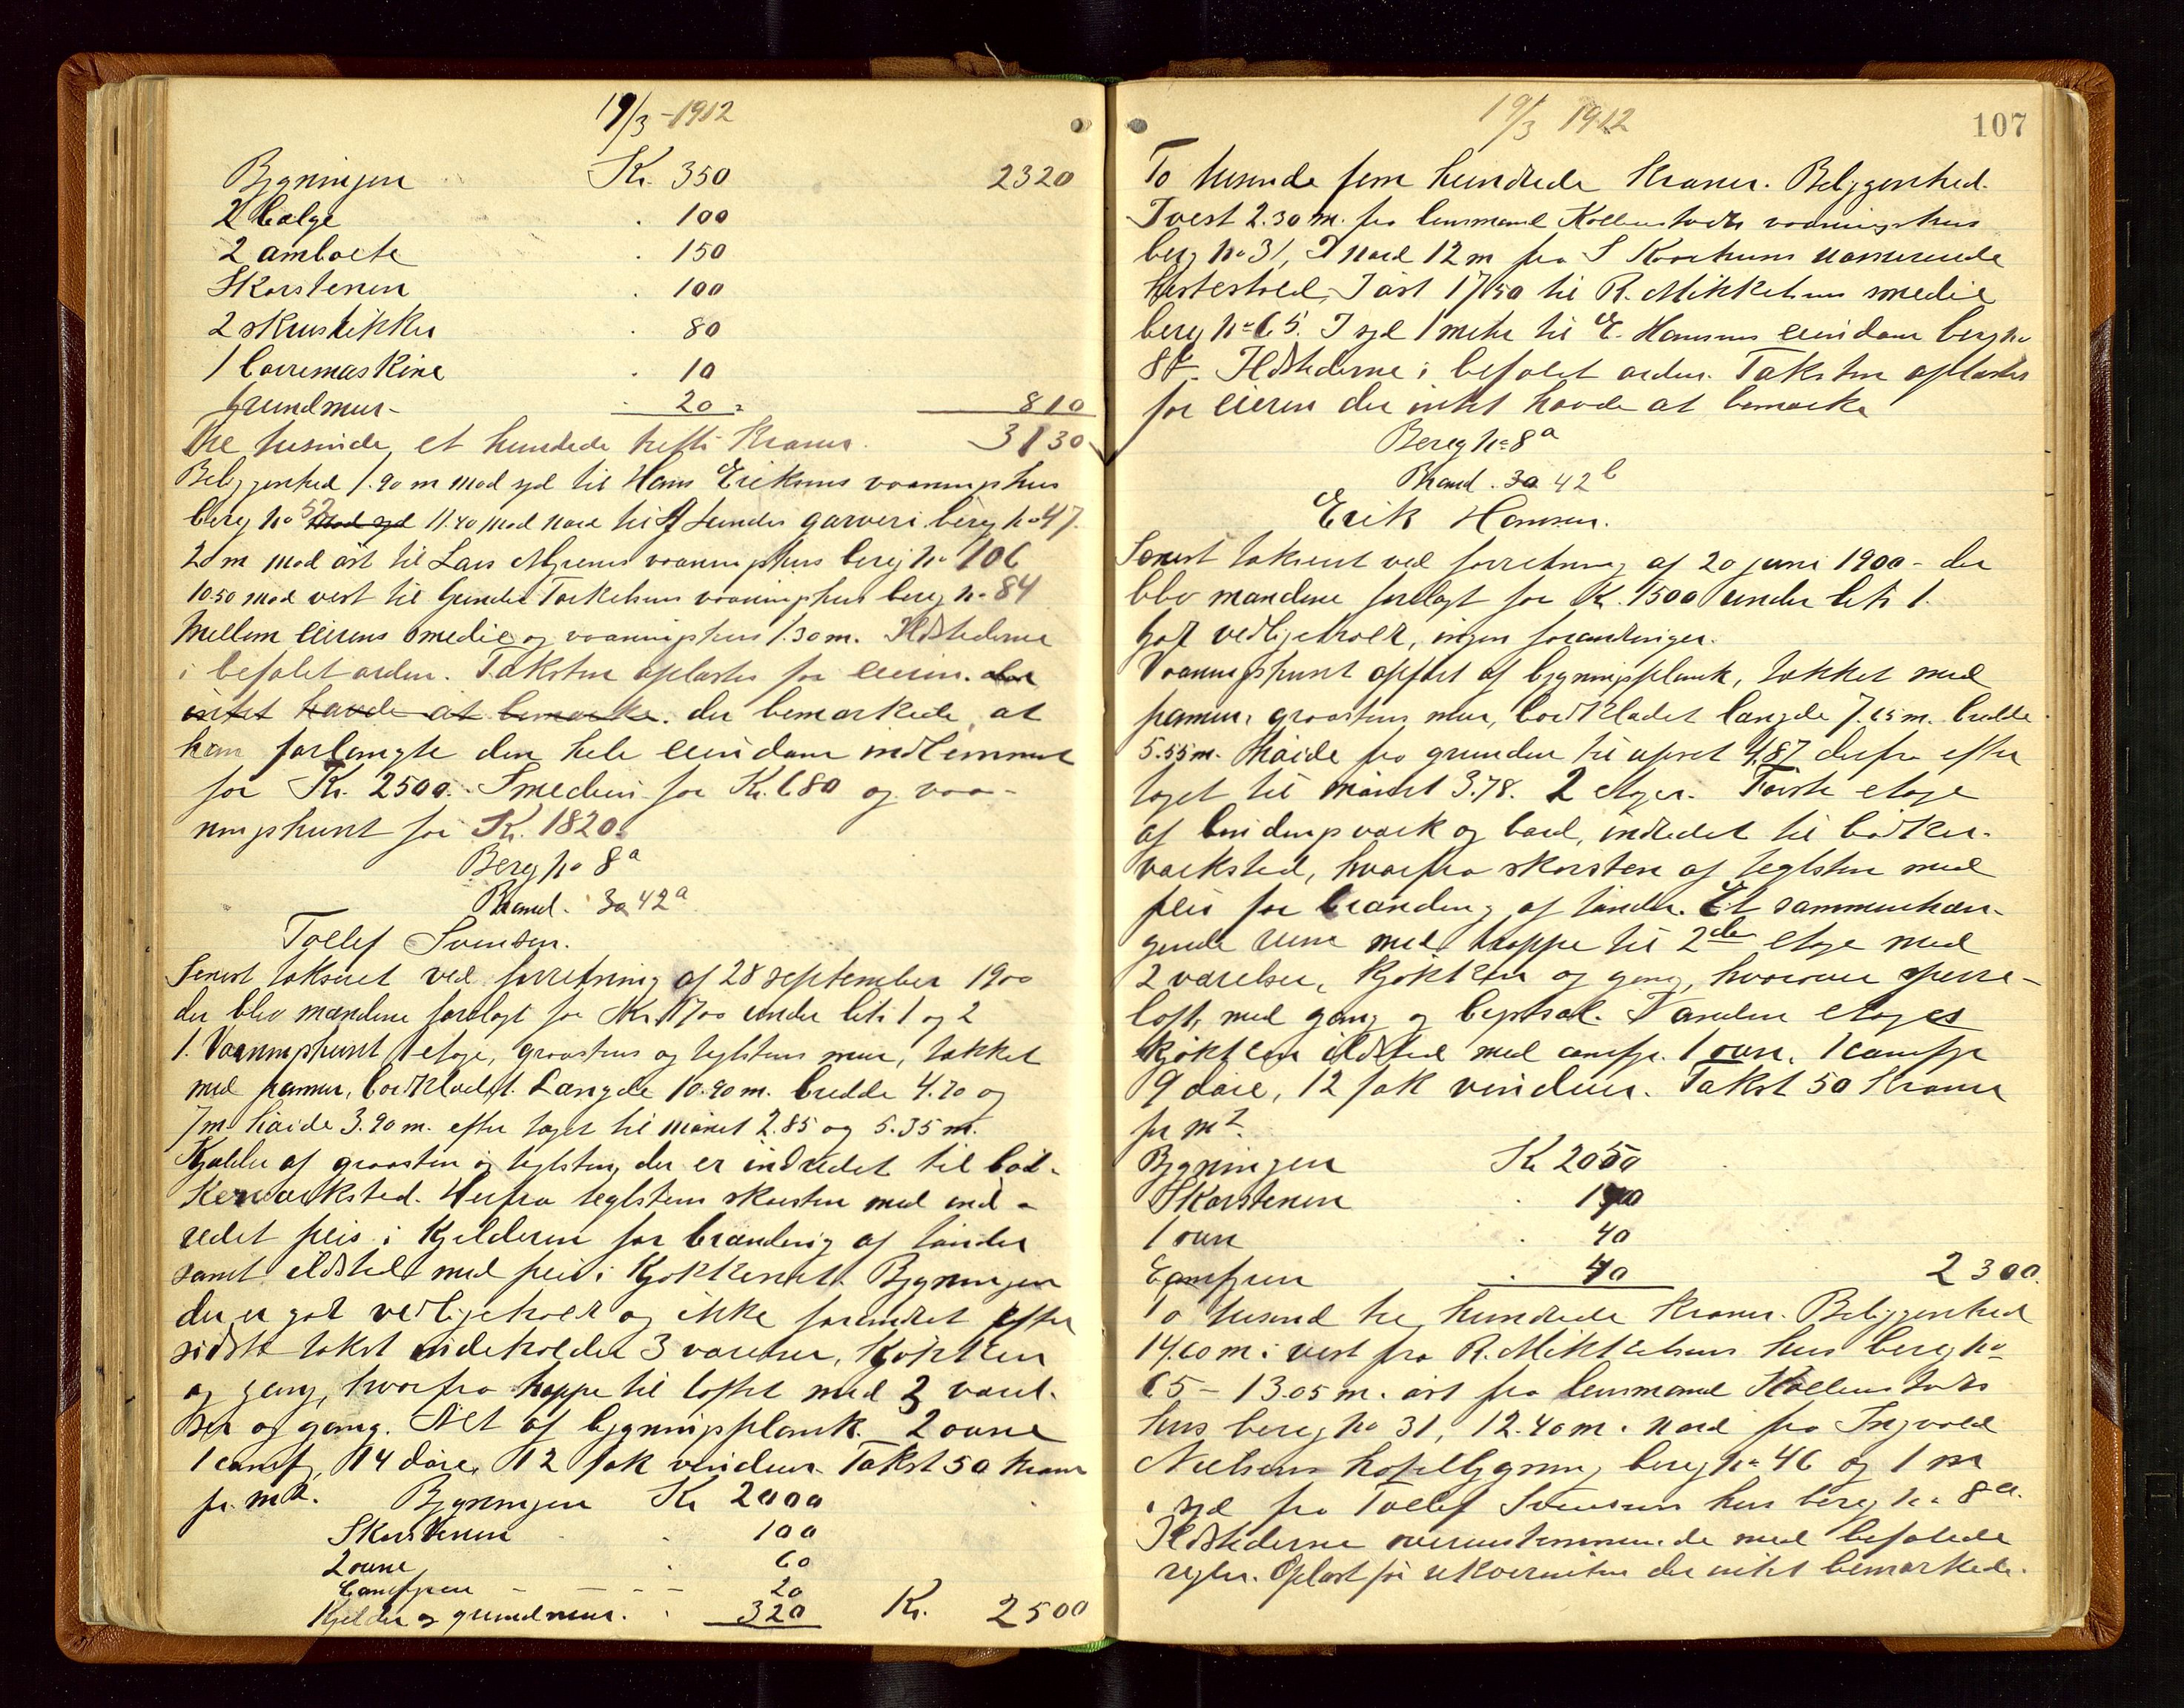 19/3 - 1912
Bygningen Kr. 350 2320
2 bælge . 100
2 ambolte . 150
Skorstenen . 100
2 skrustikker . 80
1 borremaskine . 10
Grundmur - . 20 = 810
Tre tusinde, et hundrede tretti Kroner. 3130
Beliggenhed 1.90 m mod syd til Hans Eriksens vaaningshus
bereg no 52 mod syd 11.40 mod nord til Lunder garveri bereg no 47
20 m mod øst til Lars Myrenes vaaningshus bereg no 106
10.50 mod vest til Gunder Torkelsens vaaningshus bereg no 84
Mellem eierens smedie og vaaningshus 1.30 m. Ildstederne
i befalet orden. Taksten oplæstes for eieren. der
intet havde at bemærke. der bemærkede, at
han forlangte den hele eiendom indlemmet
for Kr. 2500. Smedien for Kr. 680 og vaa-
ningshuset for Kr. 1820.
Bereg no 8a
Brand. 30 42a
Tollef Svensen.
Senest takseret ved forretning af 28 september 1900
der blev mændene forelagt for Kr. 1700 under litr 1 og 2
1. Vaaningshuset 1 etage, graastens og teglstens mur, tækket
med panner, bordklædt. Længde 10.90 m. bredde 4.70 og
7 m høide 3.90 m. efter taget til mønet 2.85 og 5.35 m.
Kjælder af graasten og teglsten, der er indredet til bød-
kerværksted. Herfra teglstens skorsten med ind-
redet peis i kjelderen for brænding af tønder
samt ildsted med peis i kjøkkenet. Bygningen
der er godt vedligeholdt og ikke forandret efter
sidste takst indeholder 3 værelser, kjøkken
og gang, hvorfra trappe til loftet med 3 værel-
ser og gang. Alt af bygningsplank. 2 ovne
1 comf., 14 døre, 12 fak vinduer. Takst 50 kroner
pr. m2. Bygningen Kr 2000
Skorstenen . 100
2 ovne . 60
Comfyren - - - - 20
Kjelder og grundmur. . 320 Kr. 2500
19/3 1912 107
To tusinde fem hundrede Kroner. Beliggenhed.
I vest 2.30 m. fra lensmand vaaningshus
bereg no 31, I nord 12 m fra S
hestestald, I øst 17.50 til R. Mikkelsens smedie
bereg no 65. I syd 1 meter til E. Hansens eiendom bereg no
8b. Ildstederne i befalet orden. Taksten oplæstes
for eieren der intet havde at bemærke
Bereg no 8a
Brand. 30 42b
Erik Hansen.
Senest takseret ved forretning af 20 juni 1900 - der
blev mændene forelagt for Kr. 1500 under litr 1.
Godt vedligeholdt, ingen forandringer.
Vaaningshuset opført af bygningsplank, tækket med
panner, graastens mur, bordklædet længde 7.65 m. bredde
5.55 m. Høide fra grunden til opset 4.87 derfra efter
taget til mønet 3.78. 2 etager. Første etage
af bindingsværk og bord, indredet til bødker-
værksted, hvorfra skorsten af teglsten med
peis for brænding af tønder. Et sammenhæn-
gende rum med trappe til 2den etage med
2 værelser, kjøkken og gang, hvorover sperre-
loft, med gang og Anden etages
kjøkken ildsted med comfyr. 1 ovn. 1 comfyr
9 døre, 12 fak vinduer. Takst 50 kroner
pr m2.
Bygningen Kr 2050
Skorstenen . 170
1 ovn . 40
Comfyren . 40 2300.
To tusind tre hundrede kroner. Beliggenhed
14.60 m i vest fra R. Mikkelsens hus bereg no
65 - 13.05 m. øst fra lensmand
hus bereg no 31, 12.40 m. nord fra Ingvald
Nielsens hotelbygning bereg no 46 og 1 m
i syd fra Tollef Svensens hus bereg no 8a.
Ildstederne overensstemmende med befalede
regler. Oplæst for rekvirenten der intet bemærkede.